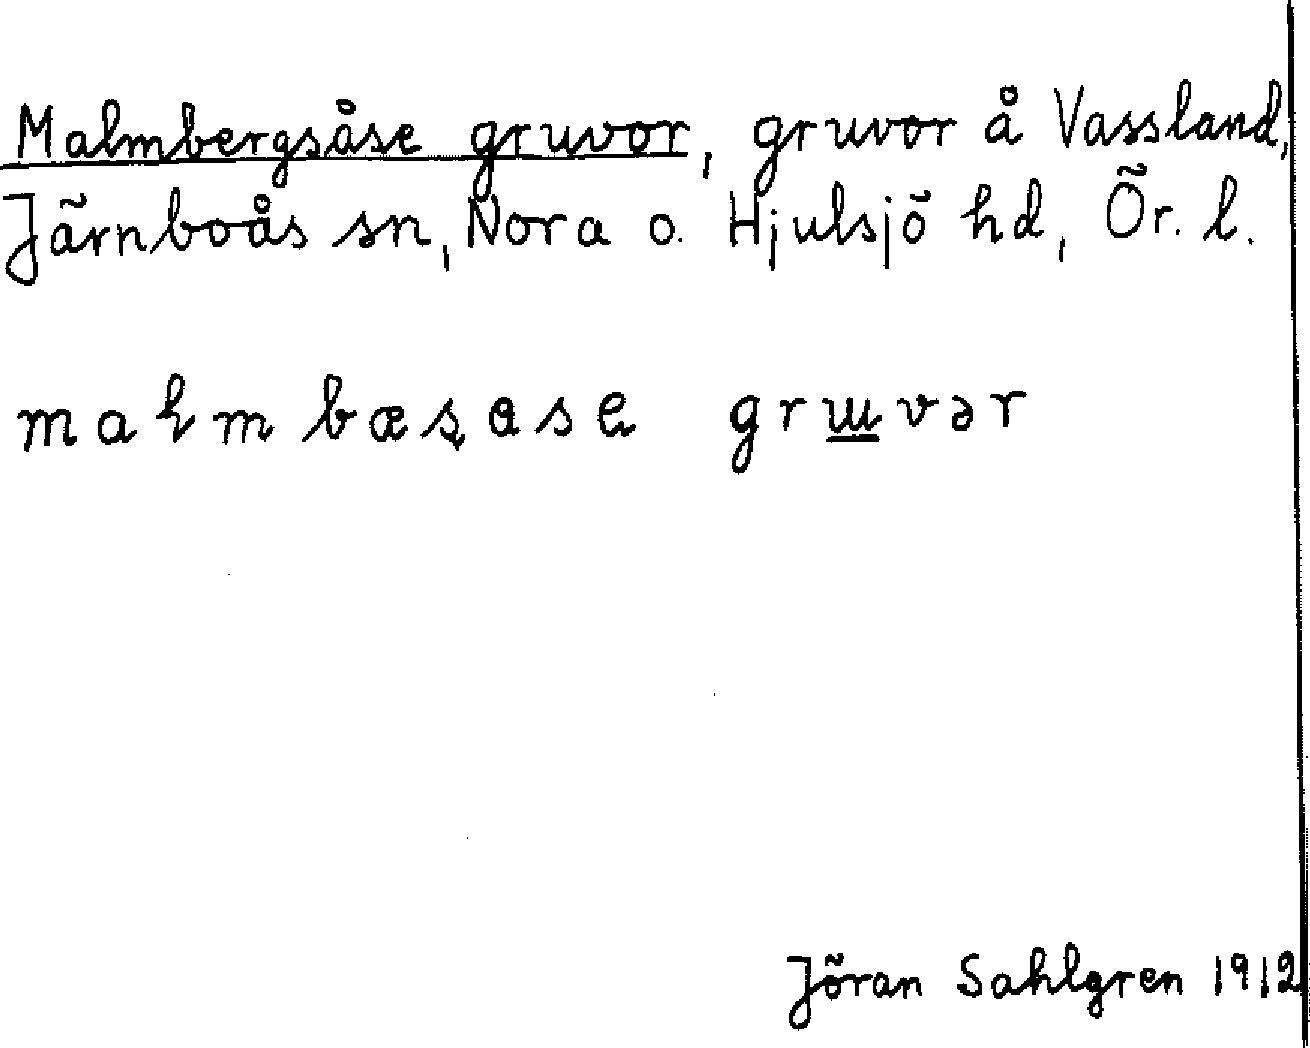 Malmbergsåse gruvor, gruvor å Vassland,
Järnboås sn, Nora o. Hjulsjö hd, Ör. l.
malmbæsase gruvər
Jöran Sahlgren 1912